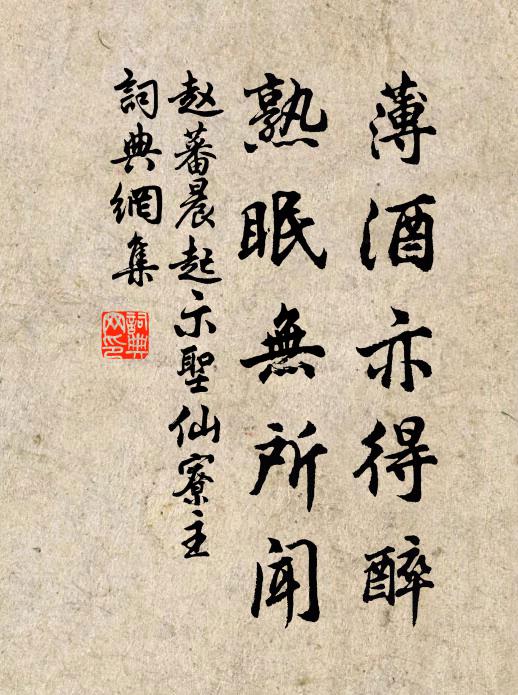 薄酒亦得醉
熟眠無所聞
赵蕃晨起示聖仙寮主
詞典網集
詞典网印